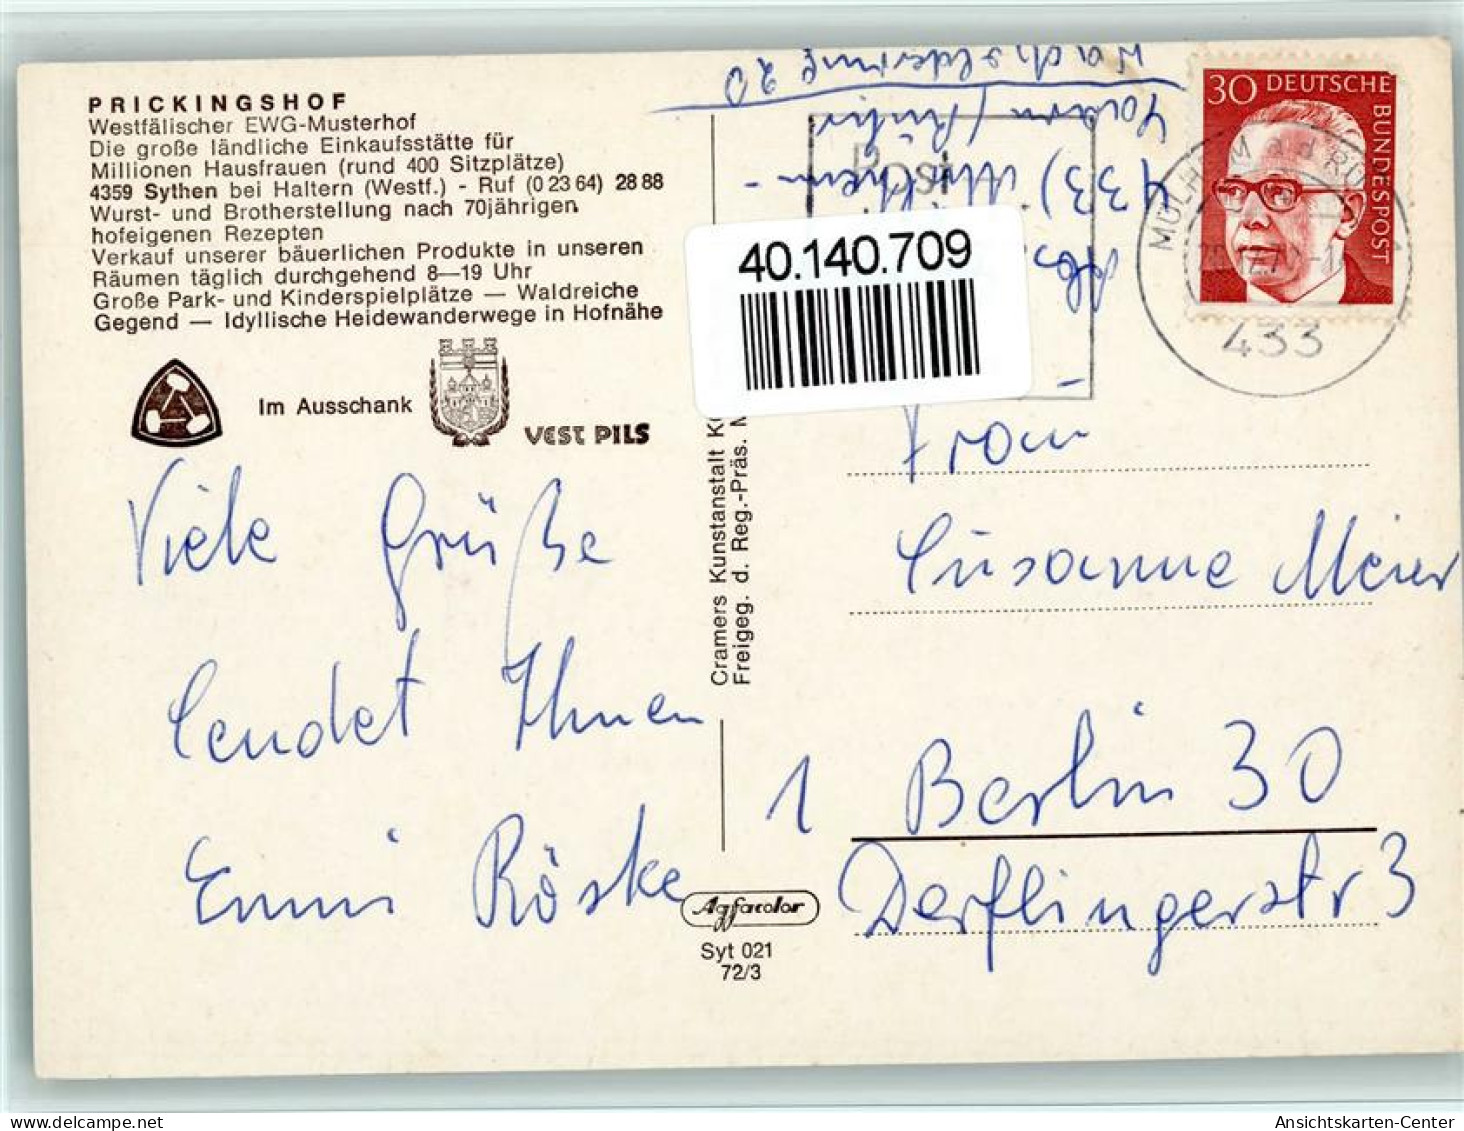 PRICKINGSHOF
Westfälischer EWG-Musterhof
Die große ländliche Einkaufsstätte für
Millionen Hausfrauen (rund 400 Sitzplätze)
4359 Sythen bei Haltern (Westf.) - Ruf (0 23 64) 28 88
Wurst- und Brotherstellung nach 70jährigen
hofeigenen Rezepten
Verkauf unserer bäuerlichen Produkte in unseren
Räumen täglich durchgehend 8—19 Uhr
Große Park- und Kinderspielplätze — Waldreiche
Gegend — Idyllische Heidewanderwege in Hofnähe
Im Ausschank
VEST PILS
Viele Grüße
sendet Ihnen
Emmi Röske
Cramers Kunstanstalt
Freigeg. d. Reg.-Präs.
Agfacolor
Syt 021
72/3
40.140.709
Post
433)
20
30 DEUTSCHE
BUNDESPOST
433
Frau
Susanne Meier
1 Berlin 30
Derflingerstr 3
Ansichtskarten-Center